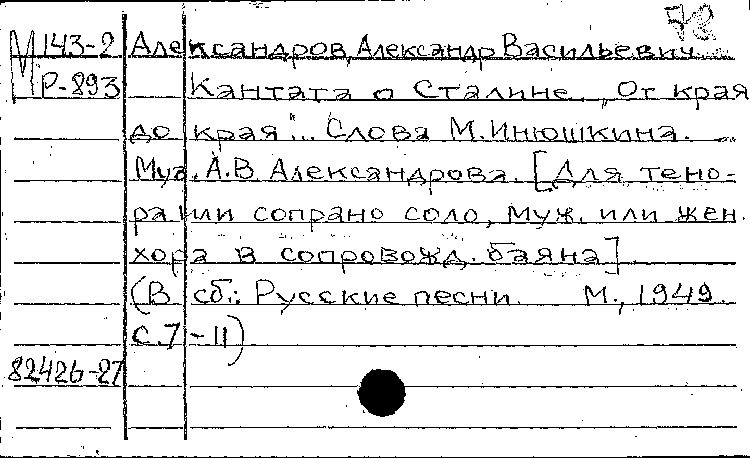 78
М 143-2 Александров, Александр Васильевич.
Р-893 Кантата о Сталине. „От края
до края"... Слова М. Инюшкина.
Муз. А.В. Александрова. [Для тено-
ра или сопрано соло, муж. или жен.
хора в сопровожд. баяна]
(В сб.: Русские песни. М., 1949.
с.7-11)
82426-27